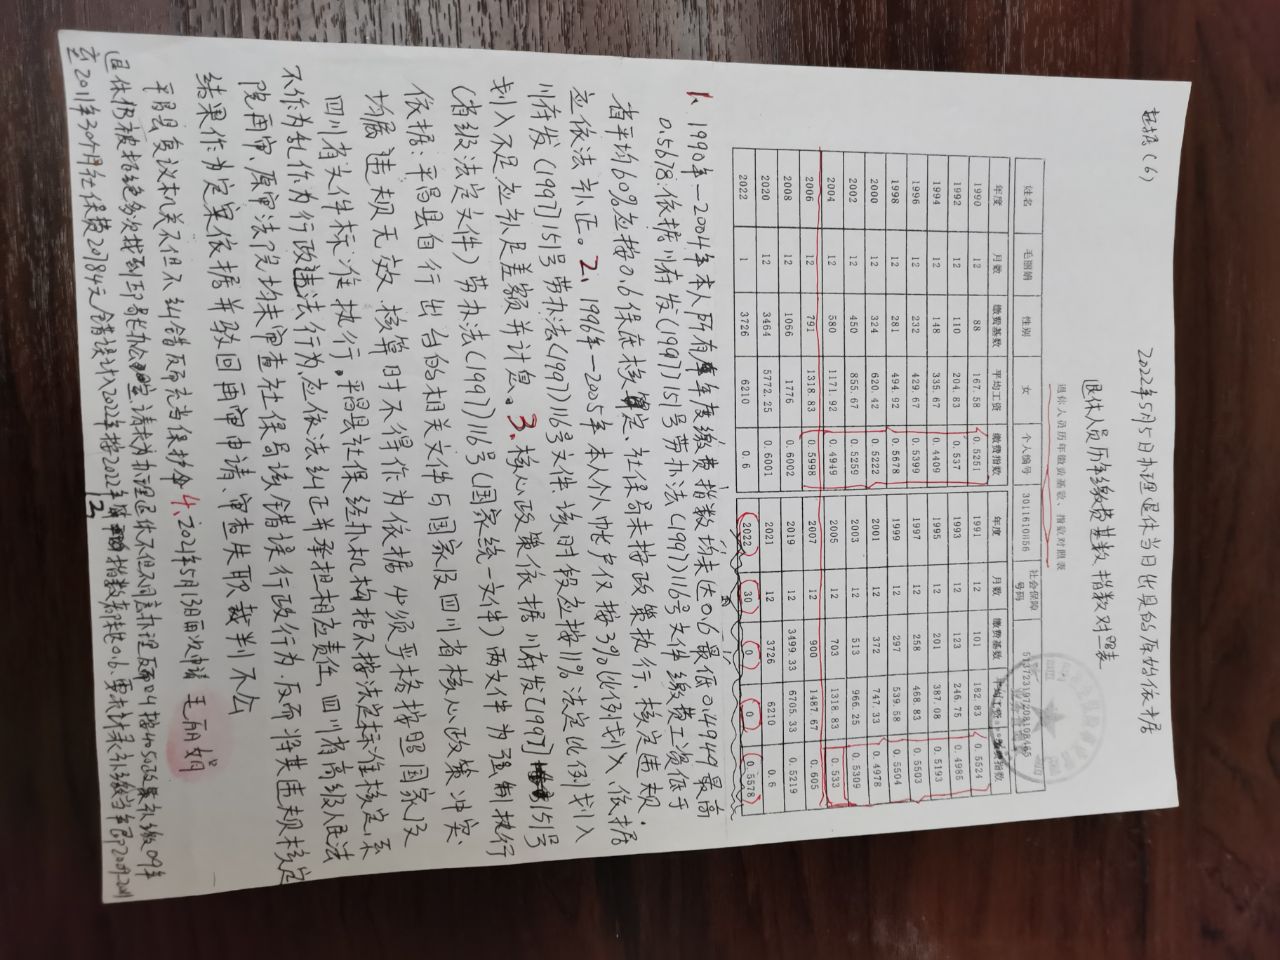 证据(6)
2022年5月5日办理退休当日出具的原始依据
退休人员历年缴费基数指数对照表
退休人员历年缴费基数、指数对照表
姓名 性别 女 个人编号 3011610156 社会保险号码
年度 月数 缴费基数 平均工资 缴费指数 年度 月数 缴费基数 平均工资 缴费指数
1990 12 88 167.58 0.5251 1991 12 101 182.83 0.5524
1992 12 110 204.83 0.537 1993 12 123 246.75 0.4985
1994 12 148 335.67 0.4409 1995 12 201 387.08 0.5193
1996 12 232 429.67 0.5399 1997 12 258 468.83 0.5503
1998 12 281 494.92 0.5678 1999 12 297 539.58 0.5504
2000 12 324 620.42 0.5222 2001 12 372 747.33 0.4978
2002 12 450 855.67 0.5259 2003 12 513 966.25 0.5309
2004 12 580 1171.92 0.4949 2005 12 703 1318.83 0.533
2006 12 791 1318.83 0.5998 2007 12 900 1487.67 0.605
2008 12 1066 1776 0.6002 2019 12 3499.33 6705.33 0.5219
2020 12 3464 5772.25 0.6001 2021 12 3726 6210 0.6
2022 1 3726 6210 0.6 2022 30 0 0 0.5578
1、1990年—2004年本人所有年度缴费指数均未达0.6最低0.4949最高
0.5678.依据川府发(1997)151号劳办法(1997)116号文件缴费工资低于
省平均60%应按0.6保底核定、社保局未按政策执行、核定违规.
应依法补正。2、1996年—2005年本人个人帐户仅按3%比例划入、依据
川府发(1997)151号劳办法(1997)116号文件.该时段应按11%法定比例划入
划入不足应补足差额并计息。3、核心政策依据川府发[1997]151号
(省级法定文件)劳办法(1997)116号(国家统一文件)两文件为强制执行
依据:平昌县自行出台的相关文件与国家及四川省核心政策冲突
均属违规无效、核算时不得作为依据、必须严格按照国家及
四川省文件标准执行。平昌县社保经办机构拒不按法定标准核定、系
不作为乱作为行政违法行为、应依法纠正并承担相应责任、四川省高级人民法
院再审、原审法院均未审查社保局该错误行政行为、反而将其违规核定
结果作为定案依据并驳回再审申请、审查失职裁判不公
平昌县复议机关不但不纠错反而充当保护伞 4、2021年5月13日再次申请 王丽娟
退休仍被拒绝多次找到
至2011年30个月社保费20784元
12